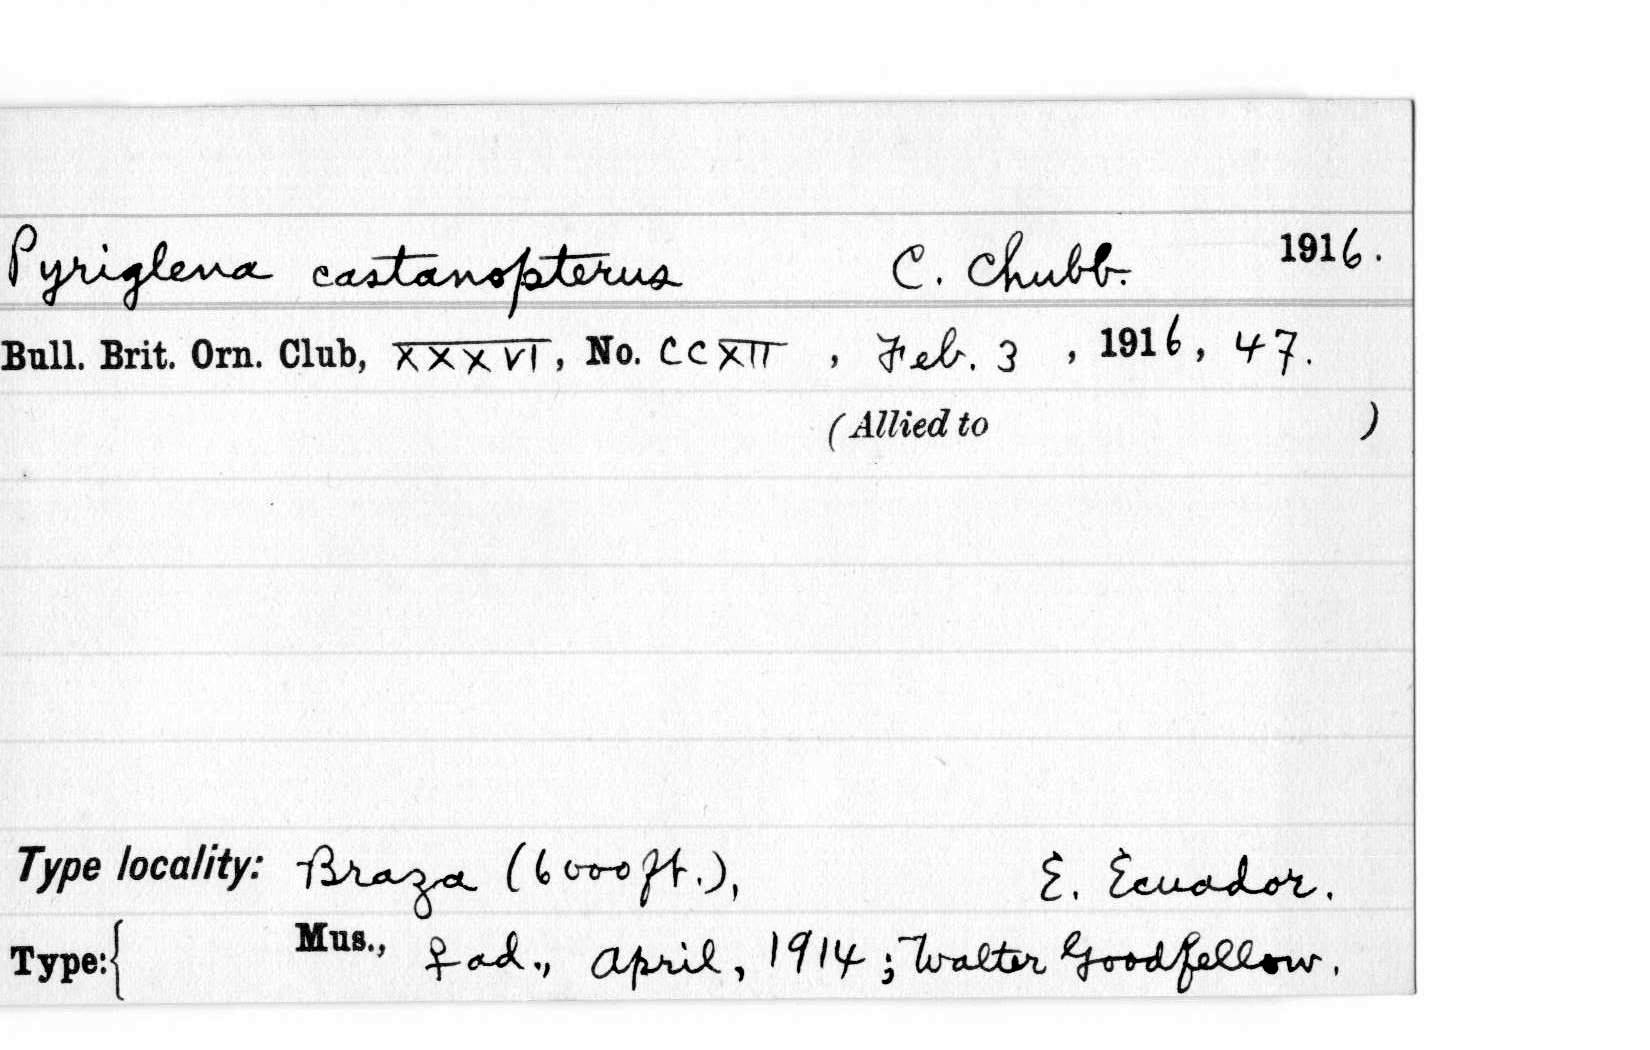 Pyriglena castanopterus C. Chubb. 1916.
Bull. Brit. Orn. Club, XXXVI, No. CCXII, Feb. 3, 1916, 47.
(Allied to )
Type locality: Braza (6000ft.), E. Ecuador.
Type:{ Mus., ♀ ad., April, 1914; Walter Goodfellow.